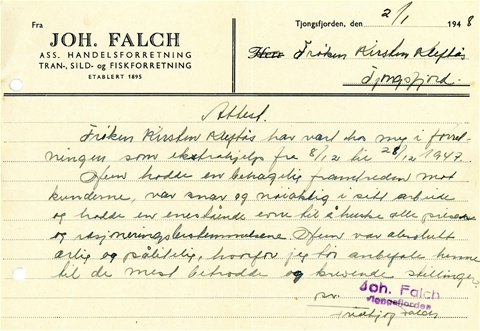 Fra
JOH. FALCH
ASS. HANDELSFORRETNING
TRAN-, SILD- og FISKFORRETNING
ETABLERT 1895
Tjongsfjorden, den 2/1 1948
Herr Frøken Kirsten Kleftås
Tjongsfjord.
Attest.
Frøken Kirsten Kleftås har vært hos meg i forret-
ningen som ekstrahjelp fra 8/12 til 28/12 1947.
Hun hadde en behagelig framtreden mot
kunderne, var snar og nøiaktig i sitt arbeide
og hadde en enestående evne til å huske alle priserne
og rasjoneringsbestemmelsene. Hun var absolutt
ærlig og pålitelig, hvorfor jeg tør anbefale henne
til de mest betrodde og krevende stillinger.
Joh. Falch
Tjongsfjorden
pr.
Falch